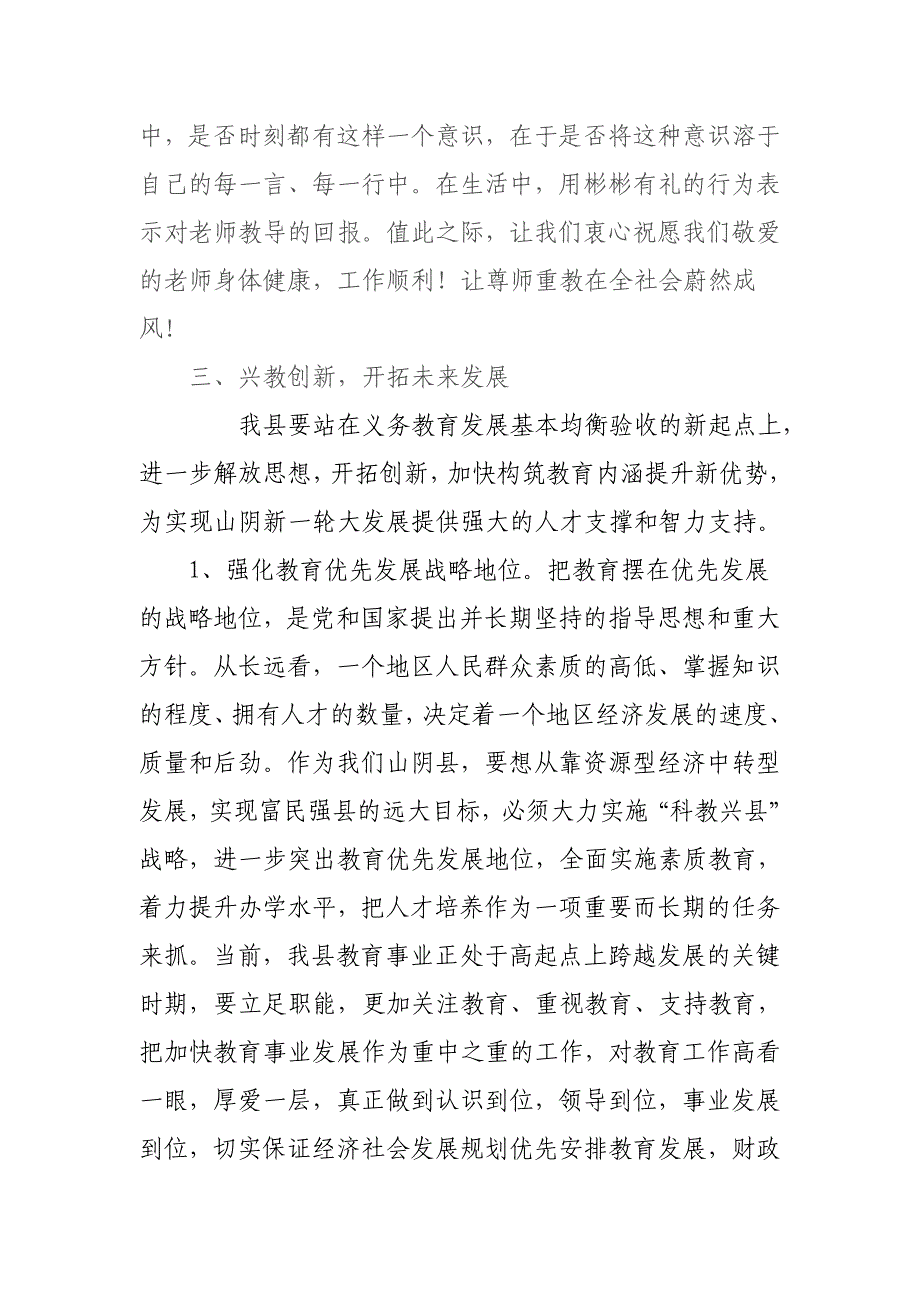 中，是否时刻都有这样一个意识，在于是否将这种意识溶于
自己的每一言、每一行中。在生活中，用彬彬有礼的行为表
示对老师教导的回报。值此之际，让我们衷心祝愿我们敬爱
的老师身体健康，工作顺利！让尊师重教在全社会蔚然成
风！
三、兴教创新，开拓未来发展
我县要站在义务教育发展基本均衡验收的新起点上，
进一步解放思想，开拓创新，加快构筑教育内涵提升新优势，
为实现山阴新一轮大发展提供强大的人才支撑和智力支持。
1、强化教育优先发展战略地位。把教育摆在优先发展
的战略地位，是党和国家提出并长期坚持的指导思想和重大
方针。从长远看，一个地区人民群众素质的高低、掌握知识
的程度、拥有人才的数量，决定着一个地区经济发展的速度、
质量和后劲。作为我们山阴县，要想从靠资源型经济中转型
发展，实现富民强县的远大目标，必须大力实施“科教兴县”
战略，进一步突出教育优先发展地位，全面实施素质教育，
着力提升办学水平，把人才培养作为一项重要而长期的任务
来抓。当前，我县教育事业正处于高起点上跨越发展的关键
时期，要立足职能，更加关注教育、重视教育、支持教育，
把加快教育事业发展作为重中之重的工作，对教育工作高看
一眼，厚爱一层，真正做到认识到位，领导到位，事业发展
到位，切实保证经济社会发展规划优先安排教育发展，财政